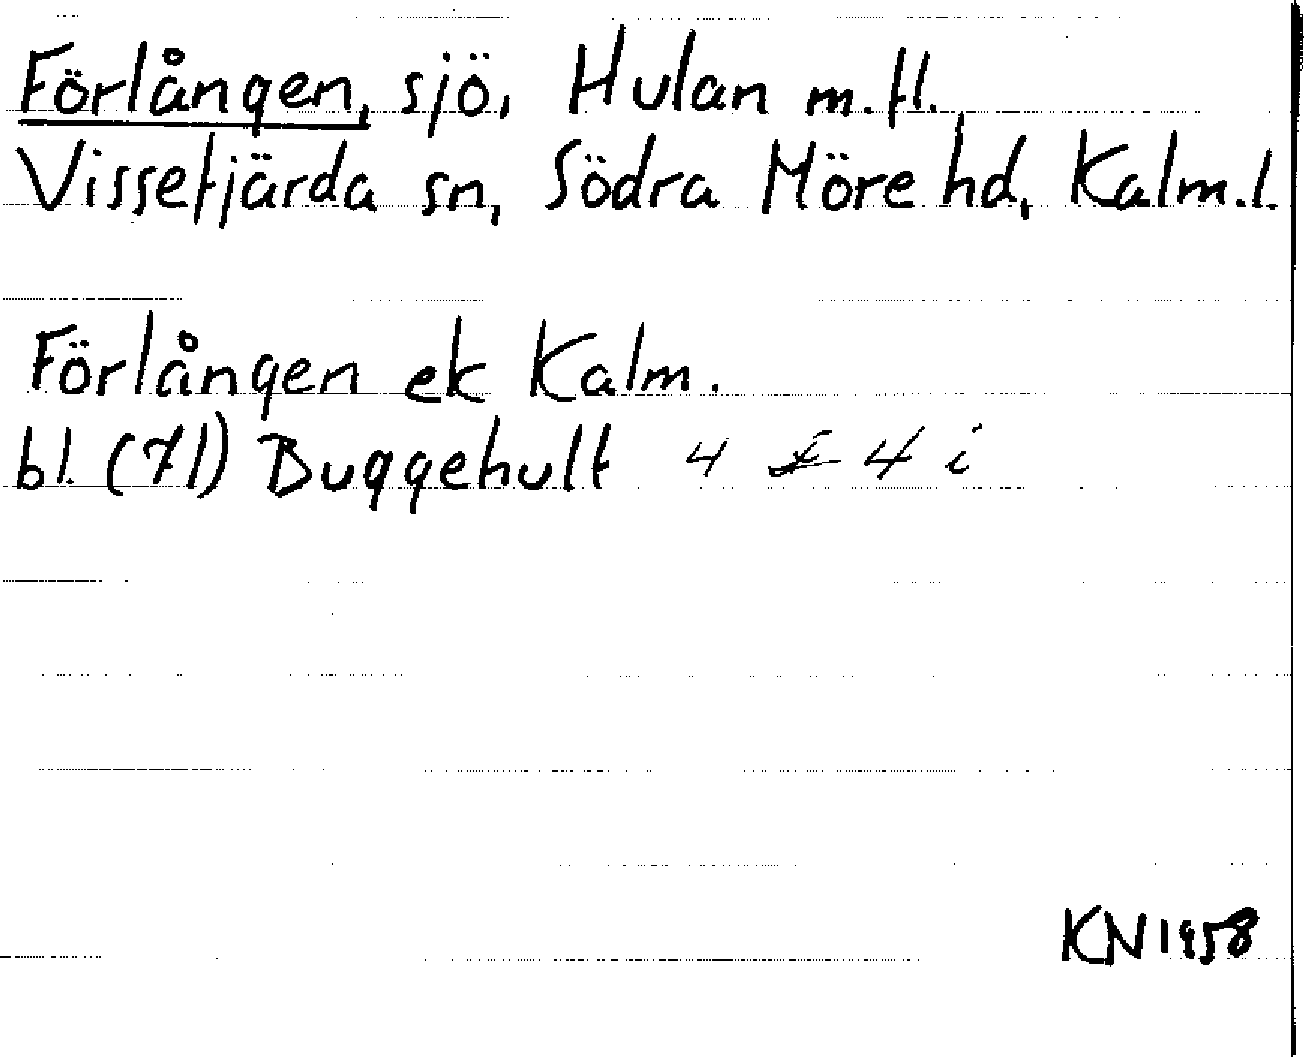 Förlången, sjö, Hulan m.fl.
Vissefjärda sn, Södra Möre hd, Kalm.l.
Förlången ek Kalm.
bl. (71) Buggehult 4 F 4 i
KN 1958